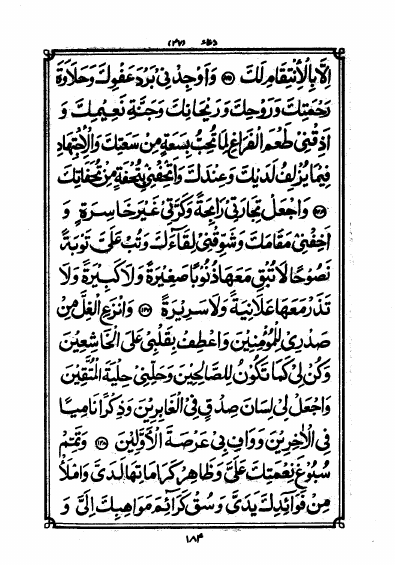 دعاء (۴۷)
اِلّا بِالْاِنْتِقامِ لَكَ ۞ وَ اَوْجِدْنى بَرْدَ عَفْوِكَ وَ حَلاوَةَ
رَحْمَتِكَ وَ رَوْحِكَ وَ رَيْحانِكَ وَ جَنَّةِ نَعيمِكَ وَ
اَذِقْنى طَعْمَ الْفَراغِ لِما تُحِبُّ بِسَعَةٍ مِنْ سَعَتِكَ وَ الْاِجْتِهادِ
فيما يُزْلِفُ لَدَيْكَ وَ عِنْدَكَ وَ اَتْحِفْنى بِتُحْفَةٍ مِنْ تُحَفاتِكَ
۞ وَ اجْعَلْ تِجارَتى رابِحَةً وَ كَرَّتى غَيْرَ خاسِرَةٍ وَ
اَخِفْنى مَقامَكَ وَ شَوِّقْنى لِقاءَكَ وَ تُبْ عَلَىَّ تَوْبَةً
نَصُوحًا لا تُبْقِ مَعَها ذُنُوبًا صَغيرَةً وَ لا كَبيرَةً وَ لا
تَذَرْ مَعَها عَلانِيَةً وَ لا سَريرَةً ۞ وَ انْزِعِ الْغِلَّ مِنْ
صَدْرى لِلْمُؤْمِنينَ وَ اعْطِفْ بِقَلْبى عَلَى الْخاشِعينَ
وَ كُنْ لى كَما تَكُونُ لِلصّالِحينَ وَ حَلِّنى حِلْيَةَ الْمُتَّقينَ
وَ اجْعَلْ لى لِسانَ صِدْقٍ فِى الْغابِرينَ وَ ذِكْرًا نامِيًا
فِى الْاخِرينَ وَ وافِ بى عَرْصَةَ الْاَوَّلينَ ۞ وَ تَمِّمْ
سُبُوغَ نِعْمَتِكَ عَلَىَّ وَ ظاهِرْ كَراماتِها لَدَىَّ وَ امْلَأْ
مِنْ فَوائِدِكَ يَدَىَّ وَ سُقْ كَرائِمَ مَواهِبِكَ اِلَىَّ وَ
۱۸۴